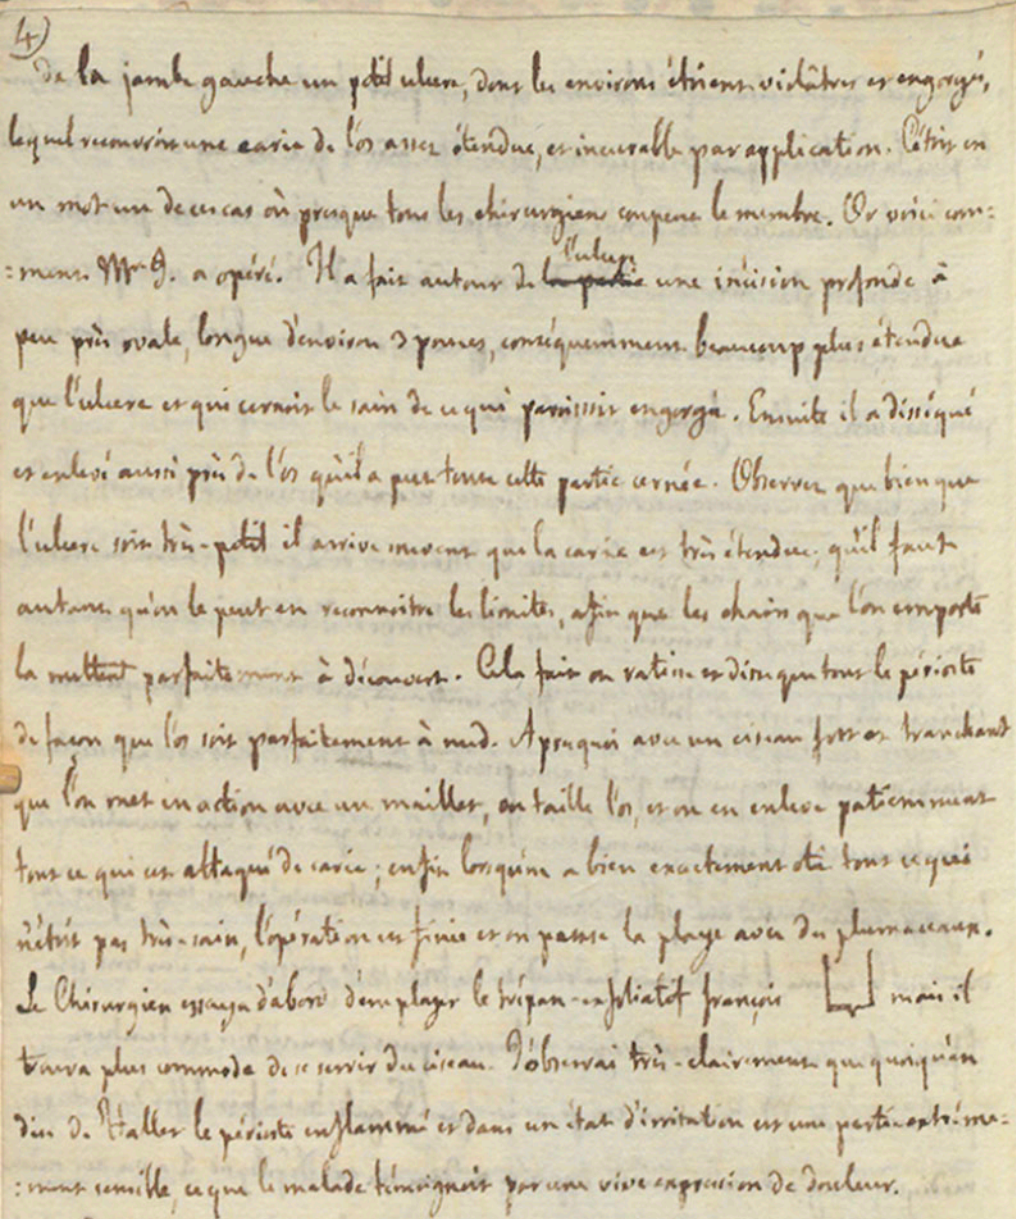 4)
de la jambe gauche un petit ulcere, dont les environs étoient violâtres et engorgés,
lequel recouvroit une carie de l'os assez étendue, et incurable par application. C'étoit en
un mot un de ces cas où presque tous les chirurgiens coupent le membre. Or voici com=
=ment Mr G. a opéré. Il a fait autour de la partie l'ulcere une incision profonde à
peu près ovale, longue d'environ 3 pouces, conséquemment beaucoup plus étendue
que l'ulcere et qui cernoit le sain de ce qui paroissoit engorgé. Ensuite il a disséqué
et enlevé aussi près de l'os qu'il a peut toute cette partie cernée. Observez que bien que
l'ulcere soit très-petit il arrive souvent que la carie est très étendue, qu'il faut
autant qu'on le peut en reconnoitre les limites, afin que les chairs que l'on emporte
la mettent parfaitement à découvert. Cela fait on ratisse et disseque tout le périoste
de façon que l'os soit parfaitement à nud. Après quoi avec un ciseau fort et tranchant
que l'on met en action avec un maillet, on taille l'os, et on en enleve patiemment
tout ce qui est attaqué de carie ; enfin lorsqu'on a bien exactement oté tout ce qui
n'étoit pas très-sain, l'opération est finie et on pansse la playe avec des plumaceaux.
Le Chirurgien essaya d'abord d'employer le trépan-exfoliatif françois mais il
trouva plus commode de se servir du ciseau. J'observai très-clairement que quoiqu'en
dise de Haller le périoste enflammé et dans un état d'irritation est une partie extrême=
=ment sensible, ce que le malade témoignoit par une vive expression de douleur.